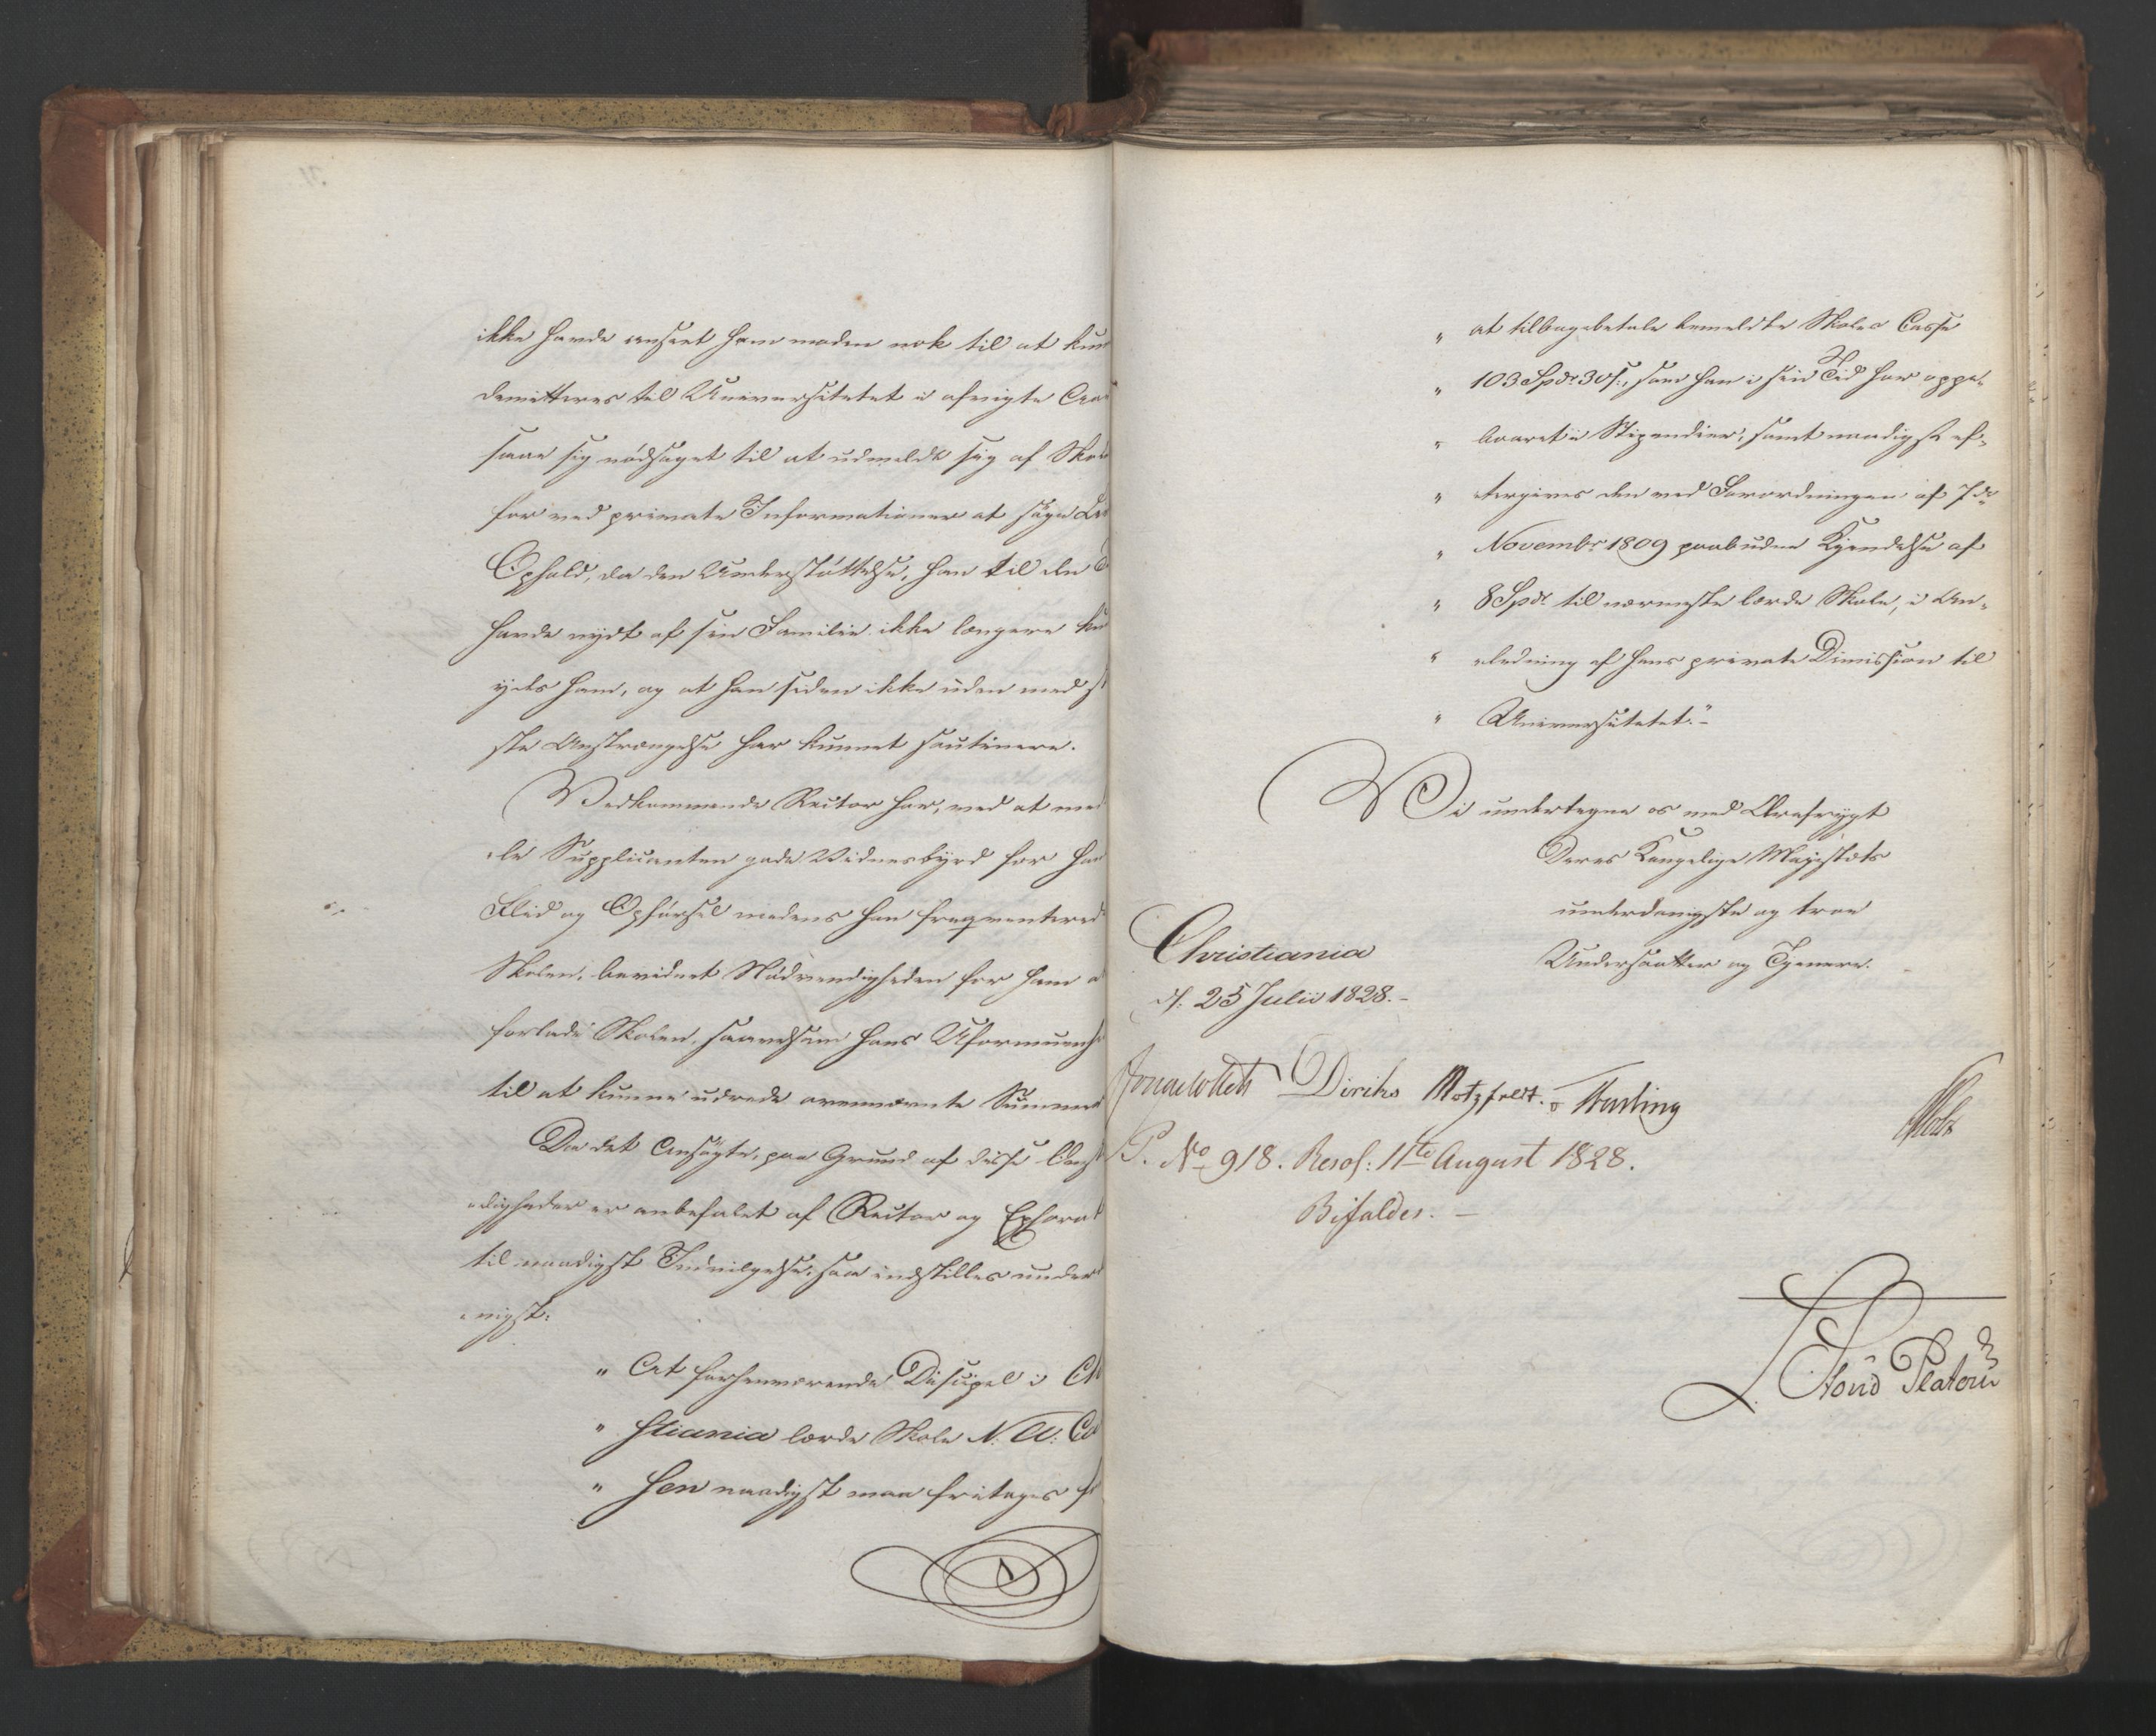 ikke havde anseet ham moden nok til at kun
demitteres til Universitetet i afvigte Aar
saae sig nødsaget til at udmelde sig af Skol
for ved private Informationer at søge
Ophold, da den Understøttelse, han til den
havde nydt af sin Familie ikke længere kun
ydes ham, og at han siden ikke uden med
ste Anstrængelse har kunnet soutinere.
Vedkommende Rector har, ved at med
„le Supplicanten gode Vidnesbyrd for han
Flid og Opførsel medens han freqventered
Skolen, bevidnet Nødvendigheden for ham a
forlade Skolen, saavelsom hans Uformuenh
til at kunne udrede ovennævnte Summer
Da det Ansøgte, paa Grund af disse Omst
„digheder er anbefalet af Rector og Ephorat
til naadigst Indvilgelse, saa indstilles under
„nigst:
„ At forhenværende Discipel i Ch
„ stiania lærde Skole N: A:
„ hen naadigst maa fritages f
„ at tilbagebetale bemeldte Skoles Casse
„ 103 Spdr 30 s:, som han i sin Tid har oppe„
„ baaret i Stipendier, samt naadigst ef„
„ tergives den ved Forordningen af 7de
„ Novembr 1809 paabudne Kjendelse af
„ 8 Spdr til nærmeste lærde Skole, i An„
„ ledning af hans private Dimission til
„ Universitetet."-
Vi undertegne os med Ærefrygt
Deres Kongelige Majestæts
underdanigste og troe
Undersaatter og Tjenere.
Christiania
d: 25 Julii 1828.-
Jonas Collett Diriks Motzfeldt. Fasting
Holst
P. No 918. Resol: 11te August 1828.
Bifaldes. -
L. Stoud Platou